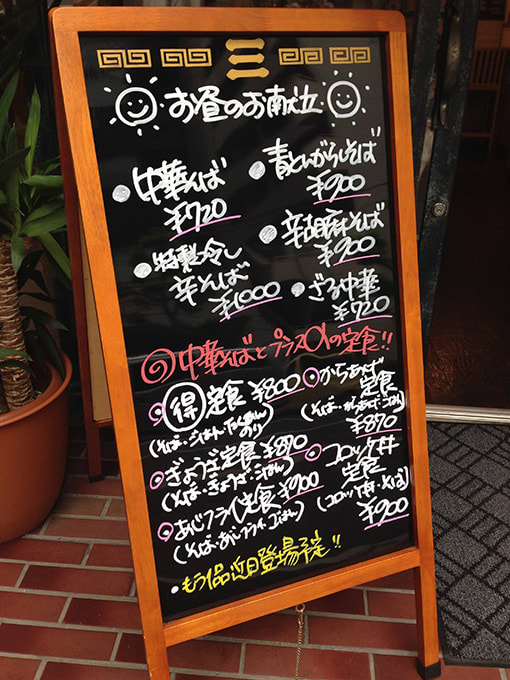 三
お昼のお献立
中華そば
¥720
青とんがらしそば
¥900
特製冷し
辛そば
¥1000
辛胡麻そば
¥900
ざる中華
¥720
中華そばとプラスαの定食!!
得定食 ¥800
(そば・ごはん・たくあん
のり)
からあげ
定食
(そば・からあげ・ごはん)
¥870
ぎょうざ定食 ¥870
(そば・ぎょうざ・ごはん)
コロッケ丼
定食
(コロッケ丼・そば)
¥900
あじフライ定食 ¥900
(そば・あじフライ・ごはん)
・もう1品近日登場予定!!